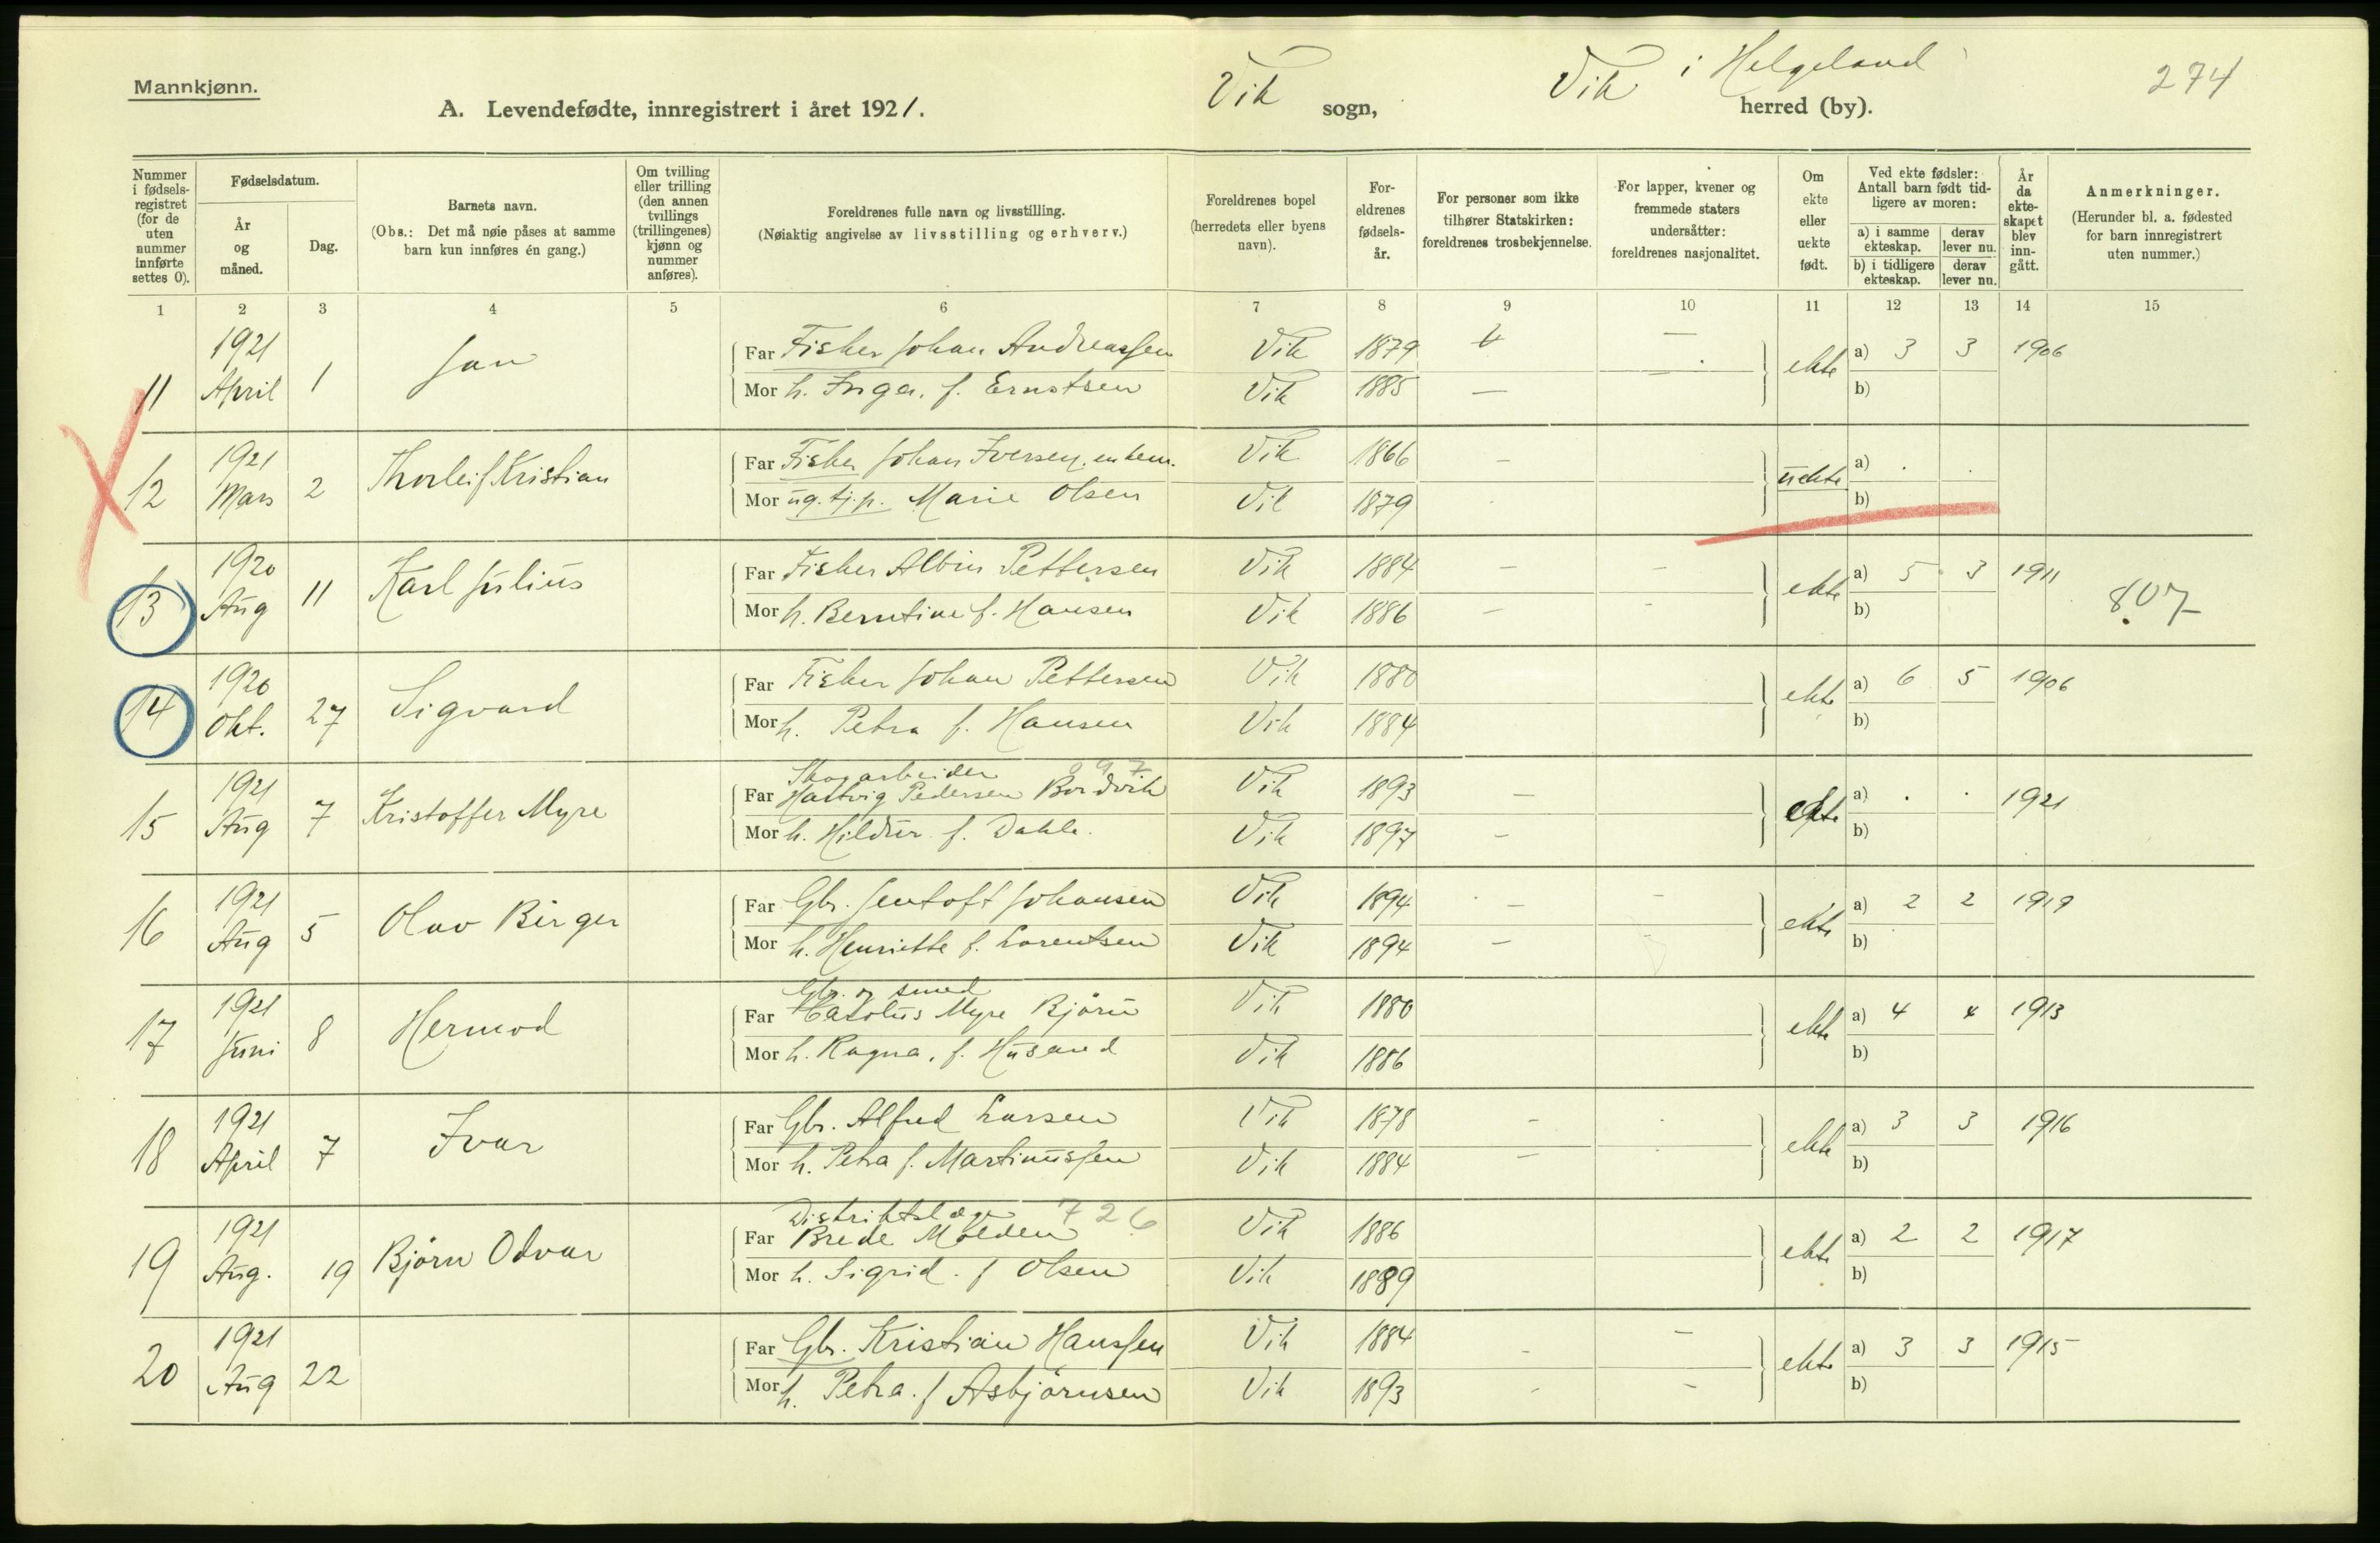 Mannkjønn.
A. Levendefødte, innregistrert i året 1921.
Vik sogn,
Vik i Helgeland herred (by).
274
Nummer i fødsels-registret (for de uten nummer innførte settes 0).
Fødselsdatum.
År og måned.
Dag.
Barnets navn.
(Obs.: Det må nøie påses at samme barn kun innføres én gang.)
Om tvilling eller trilling (den annen tvillings (trillingenes) kjønn og nummer anføres).
Foreldrenes fulle navn og livsstilling.
(Nøiaktig angivelse av livsstilling og erhverv.)
Foreldrenes bopel (herredets eller byens navn).
For-eldrenes fødsels-år.
For personer som ikke tilhører Statskirken: foreldrenes trosbekjennelse.
For lapper, kvener og fremmede staters undersåtter: foreldrenes nasjonalitet.
Om ekte eller uekte født.
Ved ekte fødsler: Antall barn født tid-ligere av moren:
a) i samme ekteskap.
derav lever nu.
b) i tidligere ekteskap.
derav lever nu.
År da ekte-skapet blev inn-gått.
Anmerkninger.
(Herunder bl. a. fødested for barn innregistrert uten nummer.)
1 2 3 4 5 6 7 8 9 10 11 12 13 14 15
11 1921 April 1 Jan
Far Fisker Johan Andreassen Vik 1879 — ekte a) 3 3 1906
Mor h. Inga, f. Ernstsen Vik 1885 — — b)
12 1921 Mars 2 Thorleif Kristian
Far Fisker Johan Iversen, enkem. Vik 1866 — uekte a) . .
Mor ug. tj.p. Marie Olsen Vik 1879 b)
13 1920 Aug 11 Karl Julius
Far Fisker Albin Pettersen Vik 1884 — — ekte a) 5 3 1911 807
Mor h. Berntine f. Hansen Vik 1886 — - b)
14 1920 Okt. 27 Sigvard
Far Fisker Johan Pettersen Vik 1880 ekte a) 6 5 1906
Mor h. Petra f. Hansen Vik 1884 b)
15 1921 Aug 7 Kristoffer Myre
Skogarbeider 097
Far Hartvig Pedersen Bordvik Vik 1893 — ekte a) . . 1921
Mor h. Hildur f. Dahle. Vik 1897 — b)
16 1921 Aug 5 Olav Birger
Far Gbr. Jentoft Johansen Vik 1894 — — ekte a) 2 2 1919
Mor h. Henriette f. Lorentsen Vik 1894 — b)
17 1921 Juni 8 Hermod
Gbr. og smed
Far Carolus Myre Bjørn Vik 1880 ekte a) 4 4 1913
Mor h. Ragna, f. Husand Vik 1886 b)
18 1921 April 7 Ivar
Far Gbr. Alfred Larsen Vik 1878 - ekte a) 3 3 1916
Mor h. Petra f. Martinussen Vik 1884 — b)
19 1921 Aug. 19 Bjørn Odvar
Distriktslæge 726
Far Brede Molden Vik 1886 ekte a) 2 2 1917
Mor h. Sigrid. f Olsen Vik 1889 b)
20 1921 Aug 22
Far Gbr. Kristian Hanssen Vik 1884 - — ekte a) 3 3 1915
Mor h. Petra. f Asbjørnsen Vik 1893 - - b)